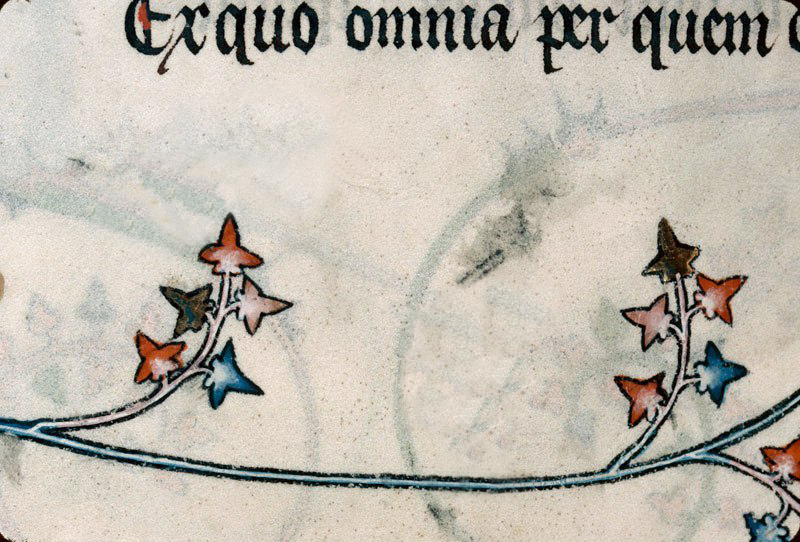 Ex quo omnia per quem